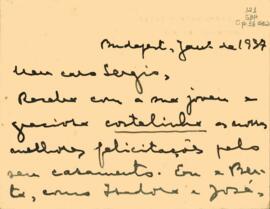 121
Budapest, Jan. de 1937
Meu caro Sergio,
Receba com a sua joven e
graciosa costelinha as nossas
melhores felicitações pelo
seu casamento. Eu e Ber-
ta, como Isadora e José,